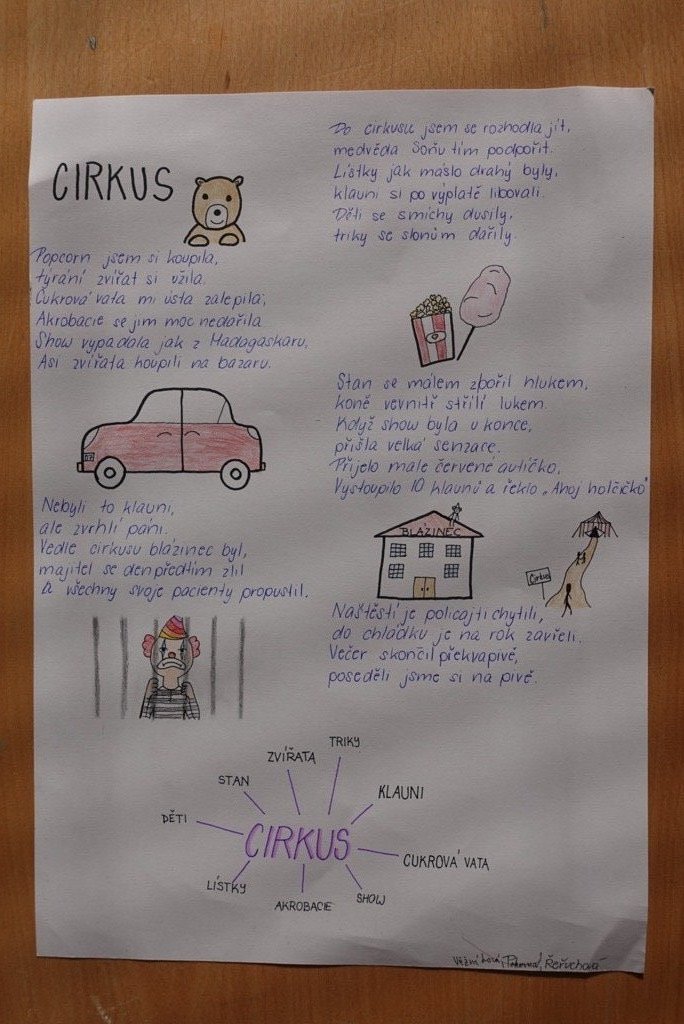 CIRKUS
Do cirkusu jsem se rozhodla jít,
medvěda Soňu tím podpořit.
Lístky jak máslo drahý byly,
klauni si po výplatě libovali.
Děti se smíchy dusily,
triky se slonům dařily.
Popcorn jsem si koupila,
týrání zvířat si užila.
Cukrová vata mi ústa zalepila,
Akrobacie se jim moc nedařila
Show vypadala jak z Madagaskaru,
Asi zvířata koupili na bazaru.
Stan se málem zbořil hlukem,
koně vevnitř střílí lukem.
Když show byla u konce,
přišla velká senzace.
Přijelo malé červené autíčko,
Vystoupilo 10 klaunů a řeklo „Ahoj holčičko"
Nebyli to klauni,
ale zvrhlí páni.
Vedle cirkusu blázinec byl,
majitel se den předtím zlil
A všechny svoje pacienty propustil.
BLÁZINEC
Cirkus
Naštěstí je policajti chytili,
do chládku je na rok zavřeli.
Večer skončil překvapivě,
poseděli jsme si na pivě.
TRIKY
ZVÍŘATA
STAN
KLAUNI
DĚTI
CIRKUS
CUKROVÁ VATA
LÍSTKY
SHOW
AKROBACIE
Řeřuchová